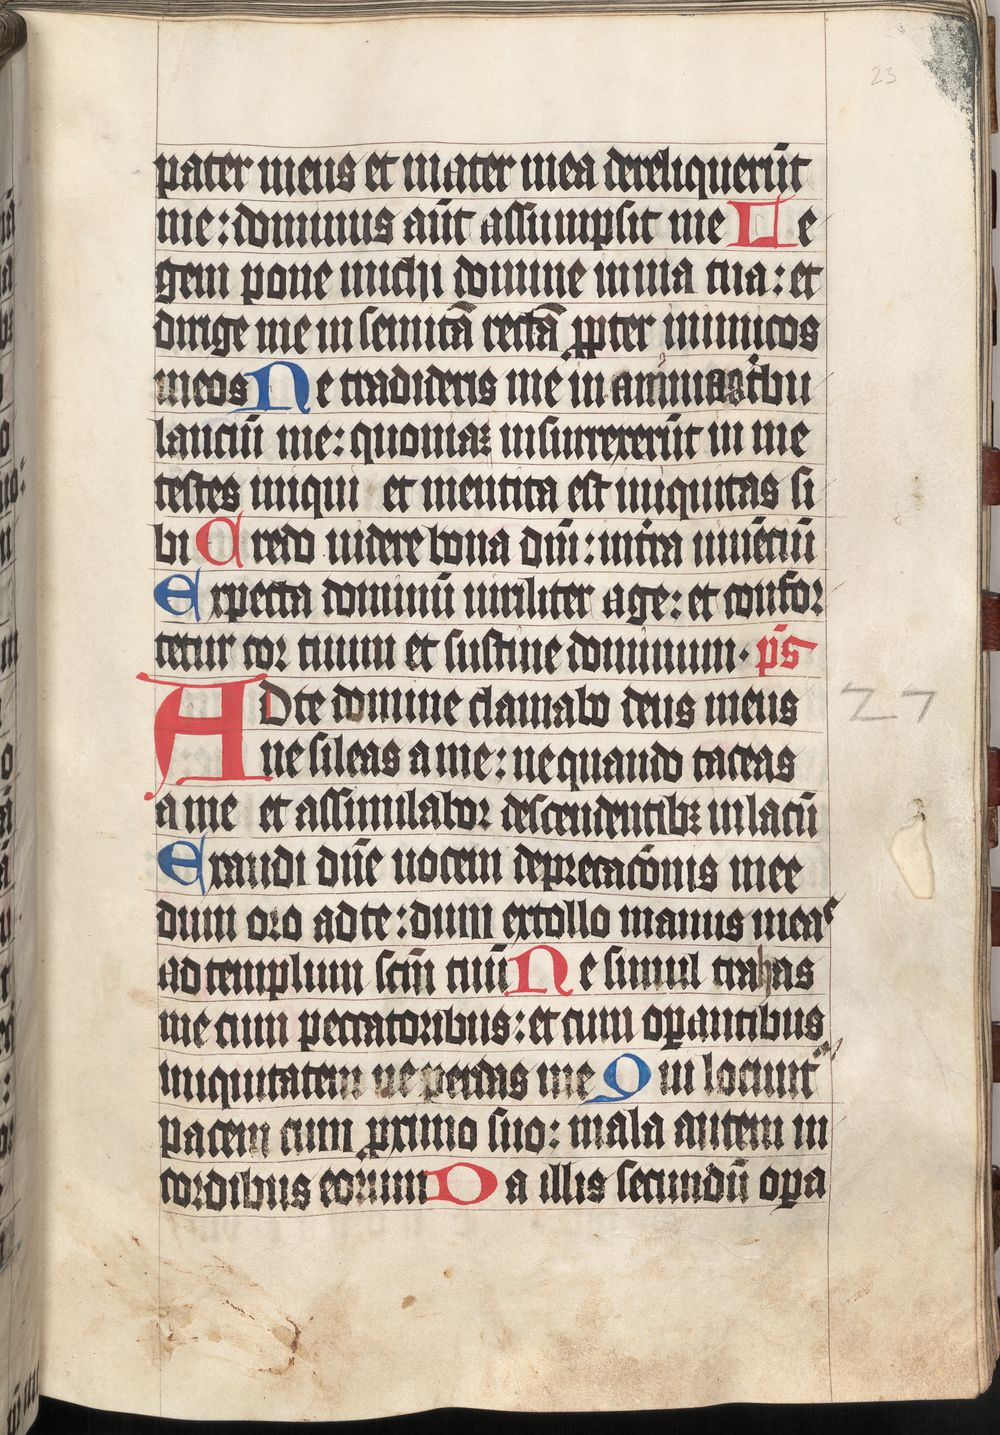 23
pater meus et mater mea dereliquerūt
me: dominus aūt assumpsit me Le
gem pone michi domine in uia tua: et
dirige me in semitā rectā ꝓpter inimicos
meos Ne tradideris me in animas tribu
lanciū me: quoniaꝫ insurrexerūt in me
testes iniqui et mentita est iniquitas si
bi Credo uidere bona dn̄i: in tr̄a uiuēciū
Expecta dominū uiriliter age: et confor
tetur cor tuum et sustine dominum. p̄s
AD te domine clamabo deus meus
ne sileas a me: nequando taceas
a me et assimilabor descendentibꝫ in lacū
Exaudi dn̄e uocem deprecac̄onis mee
dum oro ad te: dum extollo manus meas
27
ad templum scm̄ tuū Ne simul trahas
me cum peccatoribus: et cum oꝑantibus
iniquitatem ne perdas me Qui locuntͬ
pacem cum ꝓximo suo: mala autem in
cordibus eorum Da illis secundū oꝑa